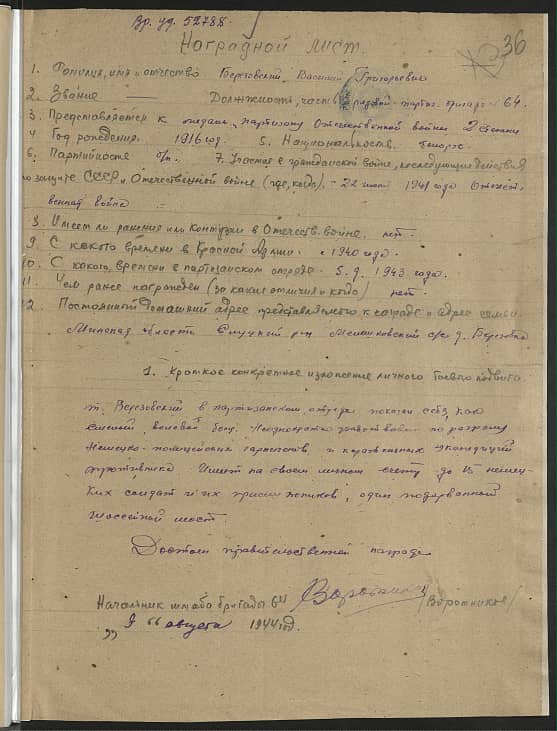 Вр. уд. 52788.
36
Наградной лист.
1. Фамилия, имя и отчество Березовский Василий Григорьевич
2. Звание — Должность, часть рядовой партиз. бригада 64.
3. Представляется к медали „Партизану Отечественной войны" 2 степени
4. Год рождения. 1916 год. 5. Национальность. белорус.
6. Партийность б/п. 7. Участие в гражданской войне, последующие действия
по защите СССР и Отечественной войне (где, когда). - 22 июня 1941 года Отечест-
венная война
8. Имеет ли ранения или контузии в Отечеств. войне. нет.
9. С какого времени в Красной Армии. с 1940 года.
10. С какого времени в партизанском отряде. 5.9. 1943 года.
11. Чем ранее награжден (за какие отличия и когда) нет.
12. Постоянный домашний адрес представляемого к награде и адрес семьи
Минская область Слуцкий р-н с/с д. Березовка
1. Краткое конкретное изложение личного боевого подвига
т. Березовский в партизанском отряде показал себя, как
смелый, волевой боец. Неоднократно участвовал по разгрому
Немецко-полицейских гарнизонов, и карательных экспедиций
противника. Имеет на своем личном счету до немец-
ких солдат и их приспешников, один подорванный
шоссейный мост.
Достоин правительственной награды
Начальник штаба бригады /Воротников/
„9" августа 1944 год.